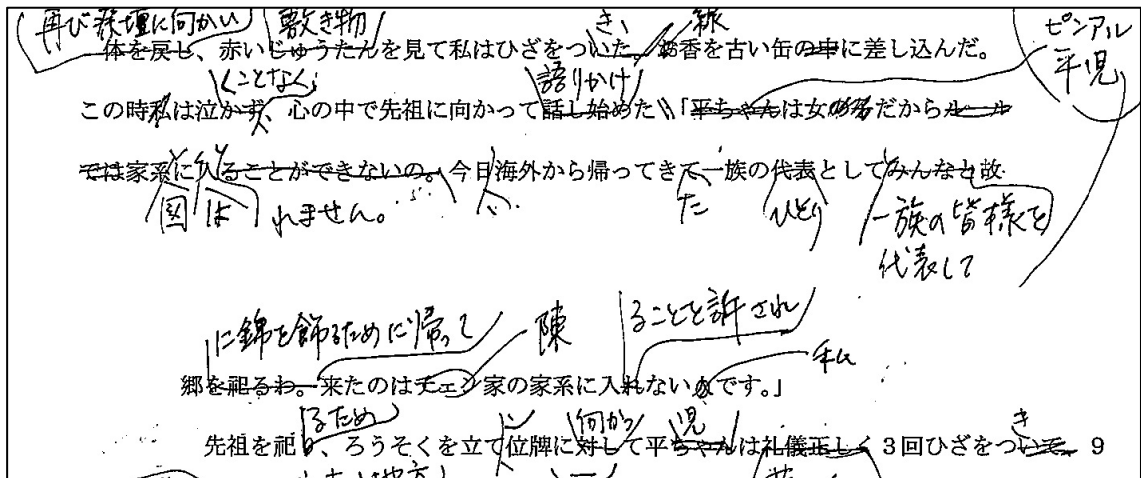 再び祭壇に向かい 敷き物 き、 線
体を戻し、赤いじゅうたんを見て私はひざをついた。お香を古い缶の中に差し込んだ。
ピンアル
平児
くことなく、 語りかけ
この時私は泣かず、心の中で先祖に向かって話し始めた。「平ちゃんは女の子だからルール
では家系に入ることができないの。今日海外から帰ってきて一族の代表としてみんなと故
図 は れません。 た ひとり 一族の皆様を
代表して
に錦を飾るために帰って 陳 ることを許され
私
郷を祀るわ。来たのはチェン家の家系に入れないのです。」
るため 向かっ 児 き
先祖を祀り、ろうそくを立て位牌に対して平ちゃんは礼儀正しく3回ひざをついて、9